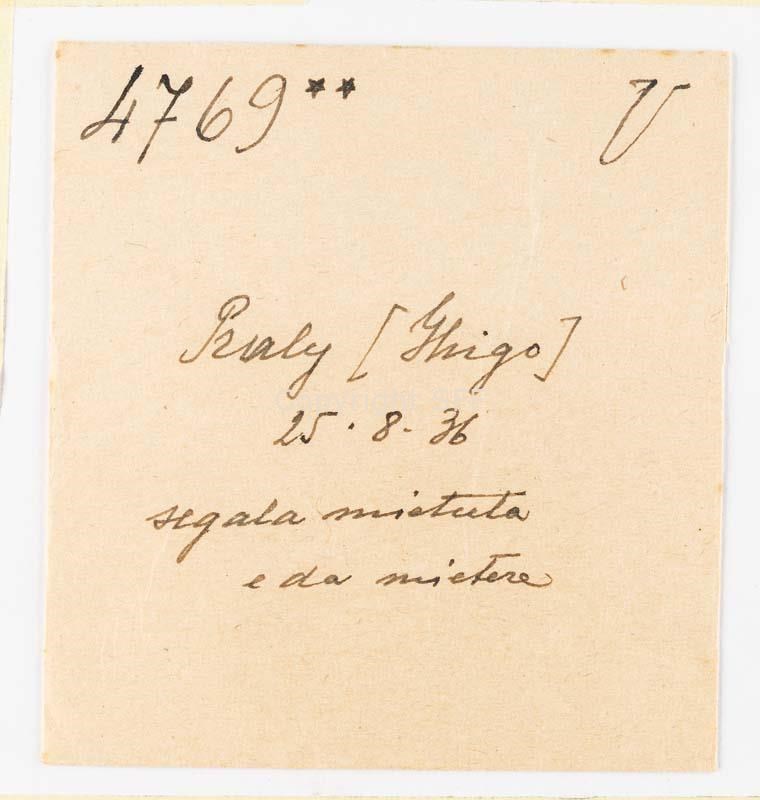 4769** V
Praly [Ghigo]
25.8.36
segala mietuta
e da mietere